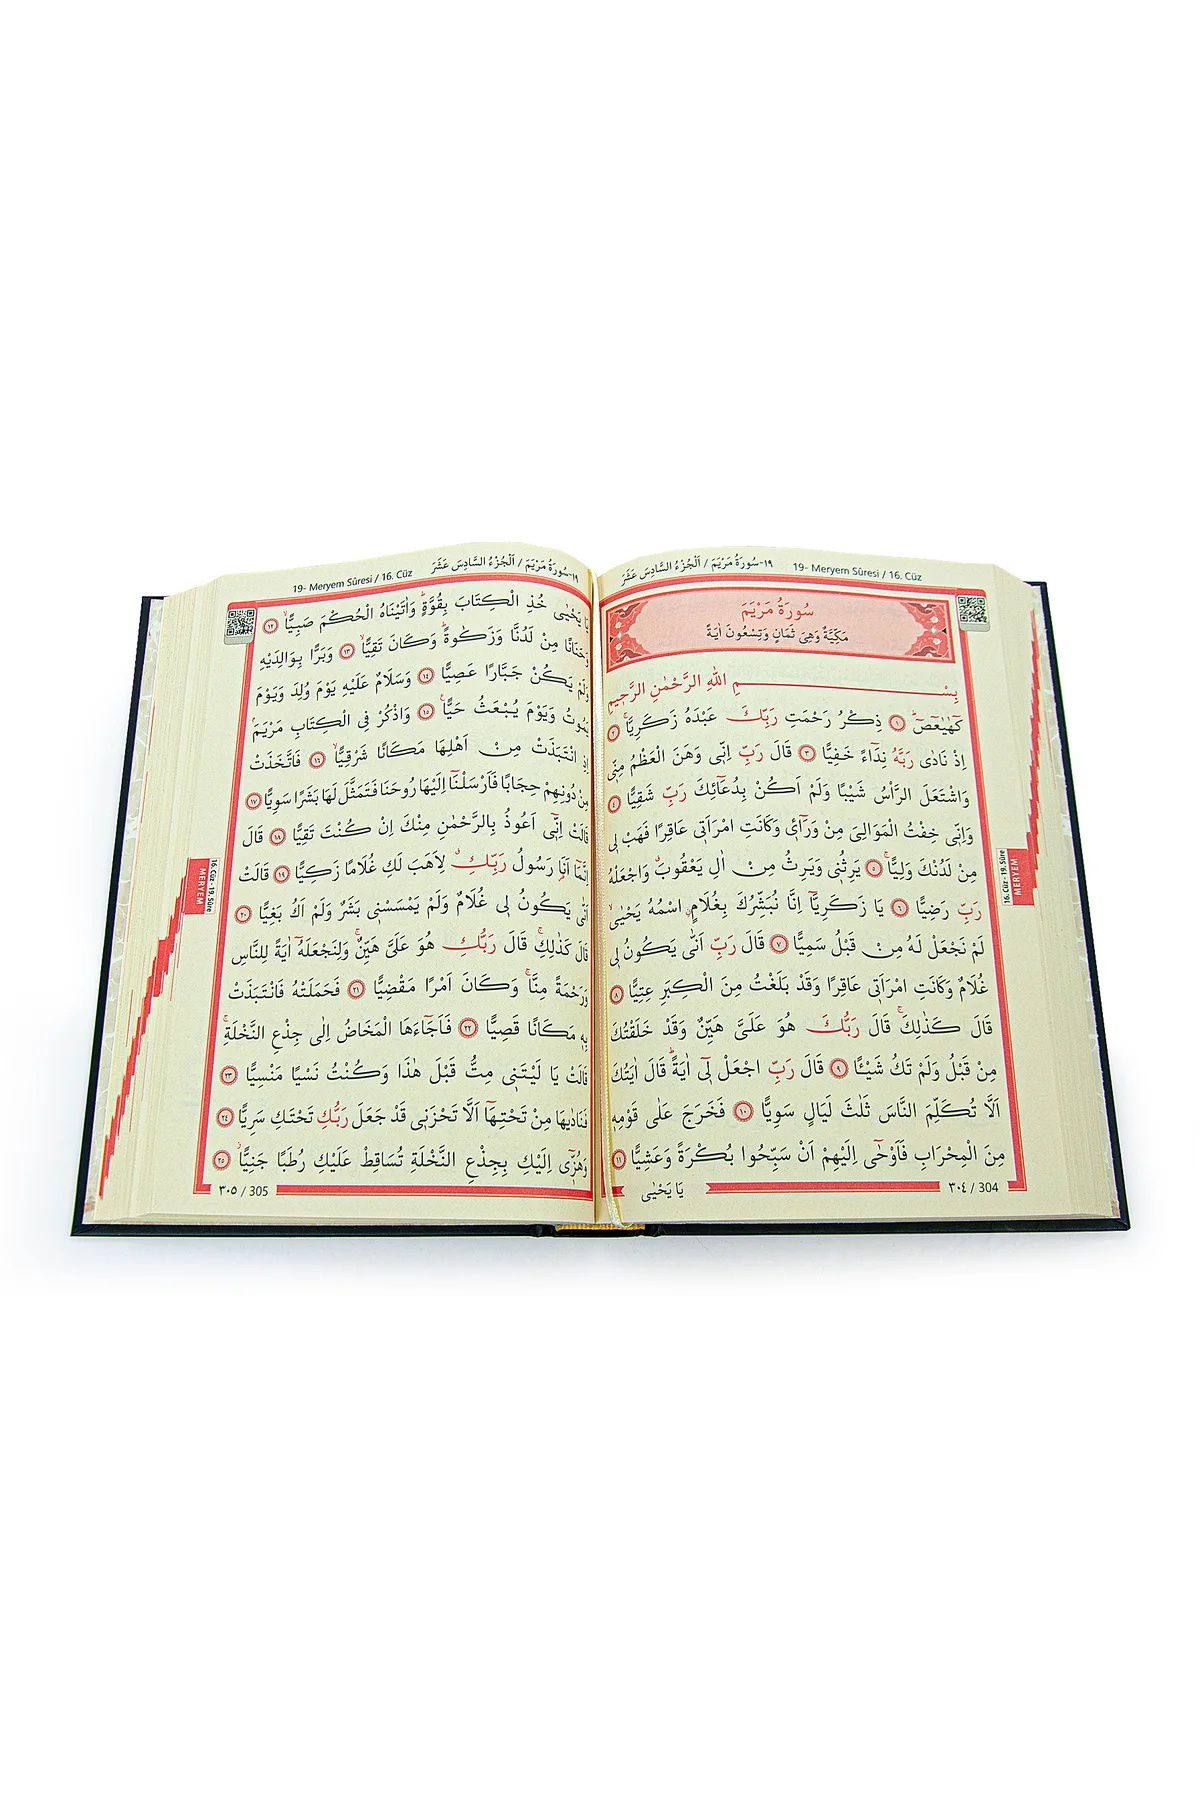 ١٩-سُورَةُ مَرْيَمَ / اَلْجُزْءُ السَّادِسَ عَشَرَ
19- Meryem Sûresi / 16. Cüz
سُورَةُ مَرْيَمَ
مَكِّيَّةٌ وَهِيَ ثَمَانٍ وَتِسْعُونَ اٰيَةً
بِسْــــمِ اللّٰهِ الرَّحْمٰنِ الرَّحِيمِ
كٓهٰيٰعٓصٓۜ ﴿١﴾ ذِكْرُ رَحْمَتِ رَبِّكَ عَبْدَهُ زَكَرِيَّاۚ ﴿٢﴾
اِذْ نَادٰى رَبَّهُ نِدَٓاءً خَفِيًّا ﴿٣﴾ قَالَ رَبِّ اِنّ۪ي وَهَنَ الْعَظْمُ مِنّ۪ي
وَاشْتَعَلَ الرَّأْسُ شَيْبًا وَلَمْ اَكُنْ بِدُعَٓائِكَ رَبِّ شَقِيًّا ﴿٤﴾
وَاِنّ۪ي خِفْتُ الْمَوَالِيَ مِنْ وَرَٓاء۪ي وَكَانَتِ امْرَاَت۪ي عَاقِرًا فَهَبْ ل۪ي
مِنْ لَدُنْكَ وَلِيًّاۙ ﴿٥﴾ يَرِثُن۪ي وَيَرِثُ مِنْ اٰلِ يَعْقُوبَۗ وَاجْعَلْهُ
رَبِّ رَضِيًّا ﴿٦﴾ يَا زَكَرِيَّٓا اِنَّا نُبَشِّرُكَ بِغُلَامٍۨ اسْمُهُ يَحْيٰىۙ
لَمْ نَجْعَلْ لَهُ مِنْ قَبْلُ سَمِيًّا ﴿٧﴾ قَالَ رَبِّ اَنّٰى يَكُونُ ل۪ي
غُلَامٌ وَكَانَتِ امْرَاَت۪ي عَاقِرًا وَقَدْ بَلَغْتُ مِنَ الْكِبَرِ عِتِيًّا ﴿٨﴾
قَالَ كَذٰلِكَۚ قَالَ رَبُّكَ هُوَ عَلَيَّ هَيِّنٌ وَقَدْ خَلَقْتُكَ
مِنْ قَبْلُ وَلَمْ تَكُ شَيْـًٔا ﴿٩﴾ قَالَ رَبِّ اجْعَلْ ل۪ٓي اٰيَةًۜ قَالَ اٰيَتُكَ
اَلَّا تُكَلِّمَ النَّاسَ ثَلٰثَ لَيَالٍ سَوِيًّا ﴿١٠﴾ فَخَرَجَ عَلٰى قَوْمِه۪
مِنَ الْمِحْرَابِ فَاَوْحٰٓى اِلَيْهِمْ اَنْ سَبِّحُوا بُكْرَةً وَعَشِيًّا ﴿١١﴾
٣٠٤ / 304
يَا يَحْيٰى
16. Cüz - 19. Sûre
MERYEM
١٩-سُورَةُ مَرْيَمَ / اَلْجُزْءُ السَّادِسَ عَشَرَ
19- Meryem Sûresi / 16. Cüz
يَا يَحْيٰى خُذِ الْكِتَابَ بِقُوَّةٍۜ وَاٰتَيْنَاهُ الْحُكْمَ صَبِيًّاۙ ﴿١٢﴾
وَحَنَانًا مِنْ لَدُنَّا وَزَكٰوةًۜ وَكَانَ تَقِيًّاۙ ﴿١٣﴾ وَبَرًّا بِوَالِدَيْهِ
وَلَمْ يَكُنْ جَبَّارًا عَصِيًّا ﴿١٤﴾ وَسَلَامٌ عَلَيْهِ يَوْمَ وُلِدَ وَيَوْمَ
يَمُوتُ وَيَوْمَ يُبْعَثُ حَيًّا۟ ﴿١٥﴾ وَاذْكُرْ فِي الْكِتَابِ مَرْيَمَۢ
اِذِ انْتَبَذَتْ مِنْ اَهْلِهَا مَكَانًا شَرْقِيًّاۙ ﴿١٦﴾ فَاتَّخَذَتْ
مِنْ دُونِهِمْ حِجَابًا فَاَرْسَلْنَٓا اِلَيْهَا رُوحَنَا فَتَمَثَّلَ لَهَا بَشَرًا سَوِيًّا ﴿١٧﴾
قَالَتْ اِنّ۪ٓي اَعُوذُ بِالرَّحْمٰنِ مِنْكَ اِنْ كُنْتَ تَقِيًّا ﴿١٨﴾ قَالَ
اِنَّمَٓا اَنَا۬ رَسُولُ رَبِّكِۗ لِاَهَبَ لَكِ غُلَامًا زَكِيًّا ﴿١٩﴾ قَالَتْ
اَنّٰى يَكُونُ ل۪ي غُلَامٌ وَلَمْ يَمْسَسْن۪ي بَشَرٌ وَلَمْ اَكُ بَغِيًّا ﴿٢٠﴾
قَالَ كَذٰلِكِۚ قَالَ رَبُّكِ هُوَ عَلَيَّ هَيِّنٌۚ وَلِنَجْعَلَهُٓ اٰيَةً لِلنَّاسِ
وَرَحْمَةً مِنَّاۚ وَكَانَ اَمْرًا مَقْضِيًّا ﴿٢١﴾ فَحَمَلَتْهُ فَانْتَبَذَتْ
بِه۪ مَكَانًا قَصِيًّا ﴿٢٢﴾ فَاَجَٓاءَهَا الْمَخَاضُ اِلٰى جِذْعِ النَّخْلَةِۚ
قَالَتْ يَا لَيْتَن۪ي مِتُّ قَبْلَ هٰذَا وَكُنْتُ نَسْيًا مَنْسِيًّا ﴿٢٣﴾
فَنَادٰيهَا مِنْ تَحْتِهَٓا اَلَّا تَحْزَن۪ي قَدْ جَعَلَ رَبُّكِ تَحْتَكِ سَرِيًّا ﴿٢٤﴾
وَهُزّ۪ٓي اِلَيْكِ بِجِذْعِ النَّخْلَةِ تُسَاقِطْ عَلَيْكِ رُطَبًا جَنِيًّاۘ ﴿٢٥﴾
٣٠٥ / 305
16. Cüz - 19. Sûre
MERYEM